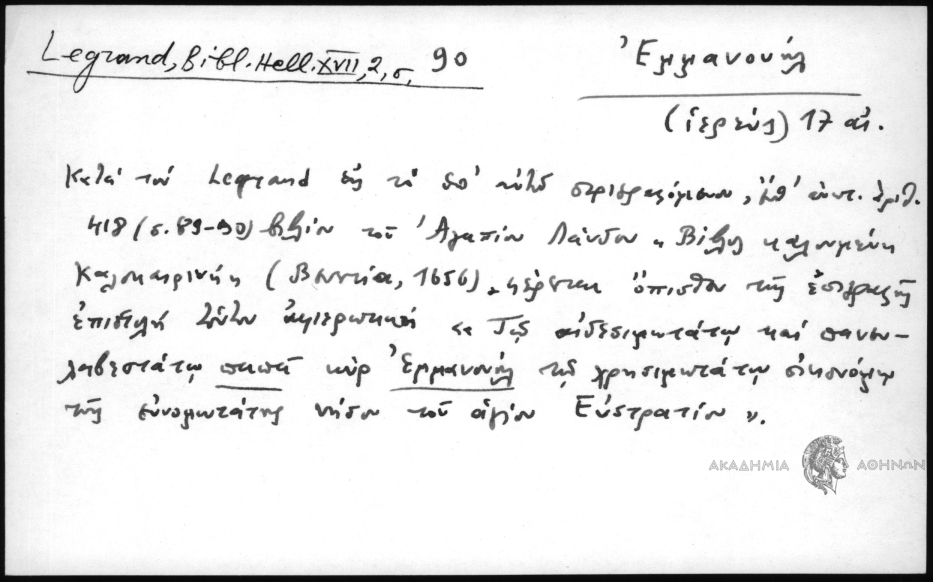 Legrand, Bibl. Hell. XVII, 2, σ. 90
Ἐμμανουήλ
(ἱερεύς) 17 αἰ.
Κατά τον Legrand εἰς τό ὑπ' αὐτοῦ περιγραφόμενον, ὑπ' αὔξ. ἀριθ.
418 (σ. 89-90) βιβλίον τοῦ Ἀγαπίου Λάνδου « Βίβλος καλουμένη
Καλοκαιρινή (Βενετία, 1656), φέρεται ὄπισθεν τῆς ἐπιγραφῆς
ἐπιστολή τούτου ἀφιερωτική « Τῷ αἰδεσιμωτάτῳ καί πανευ-
λαβεστάτῳ παπᾶ κύρ Ἐμμανουήλ τῷ χρησιμωτάτῳ οἰκονόμῳ
τῆς εὐνομωτάτης νήσου τοῦ ἁγίου Εὐστρατίου ».
ΑΚΑΔΗΜΙΑ ΑΘΗΝΩΝ